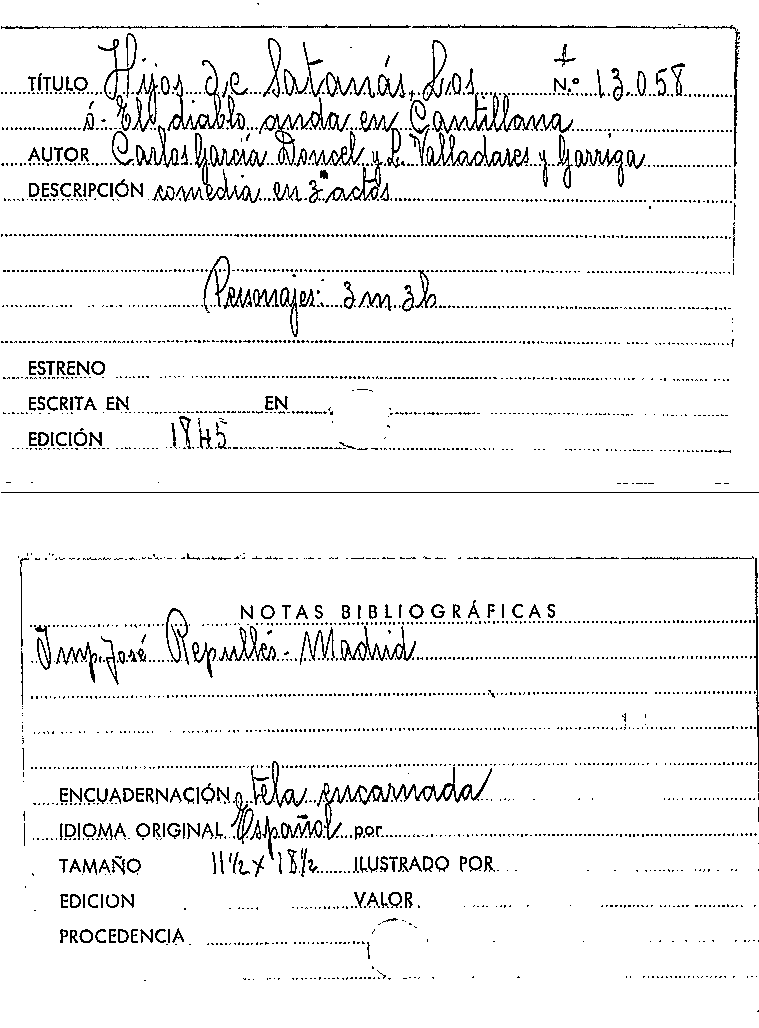 TÍTULO Hijos de Satanás, Los N.º 13.058
ó- El diablo anda en Cantillana
AUTOR Carlos García Doncel y L. Valladares y Garriga
DESCRIPCIÓN comedia en 3 actos
Personajes: 3 m 3 h
ESTRENO
ESCRITA EN EN
EDICIÓN 1845
NOTAS BIBLIOGRÁFICAS
Imp. José Repullés - Madrid
ENCUADERNACIÓN tela encarnada
IDIOMA ORIGINAL Español por
TAMAÑO 11 1/2 x 18 1/2 ILUSTRADO POR
EDICION VALOR
PROCEDENCIA